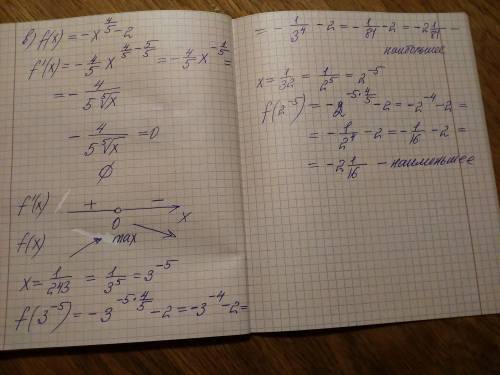 в) f(x) = -x^(4/5) - 2
f'(x) = -4/5 x^(4/5 - 5/5) = -4/5 x^(-1/5) =
= - 4/(5 ⁵√x)
- 4/(5 ⁵√x) = 0
∅
f'(x) + - x
0
f(x) max
x = 1/243 = 1/3^5 = 3^(-5)
f(3^(-5)) = -3^(-5·4/5) - 2 = -3^(-4) - 2 =
= - 1/3^4 - 2 = - 1/81 - 2 = -2 1/81 -
наибольшее
x = 1/32 = 1/2^5 = 2^(-5)
f(2^(-5)) = -2^(-5·4/5) - 2 = -2^(-4) - 2 =
= - 1/2^4 - 2 = - 1/16 - 2 =
= -2 1/16 - наименьшее